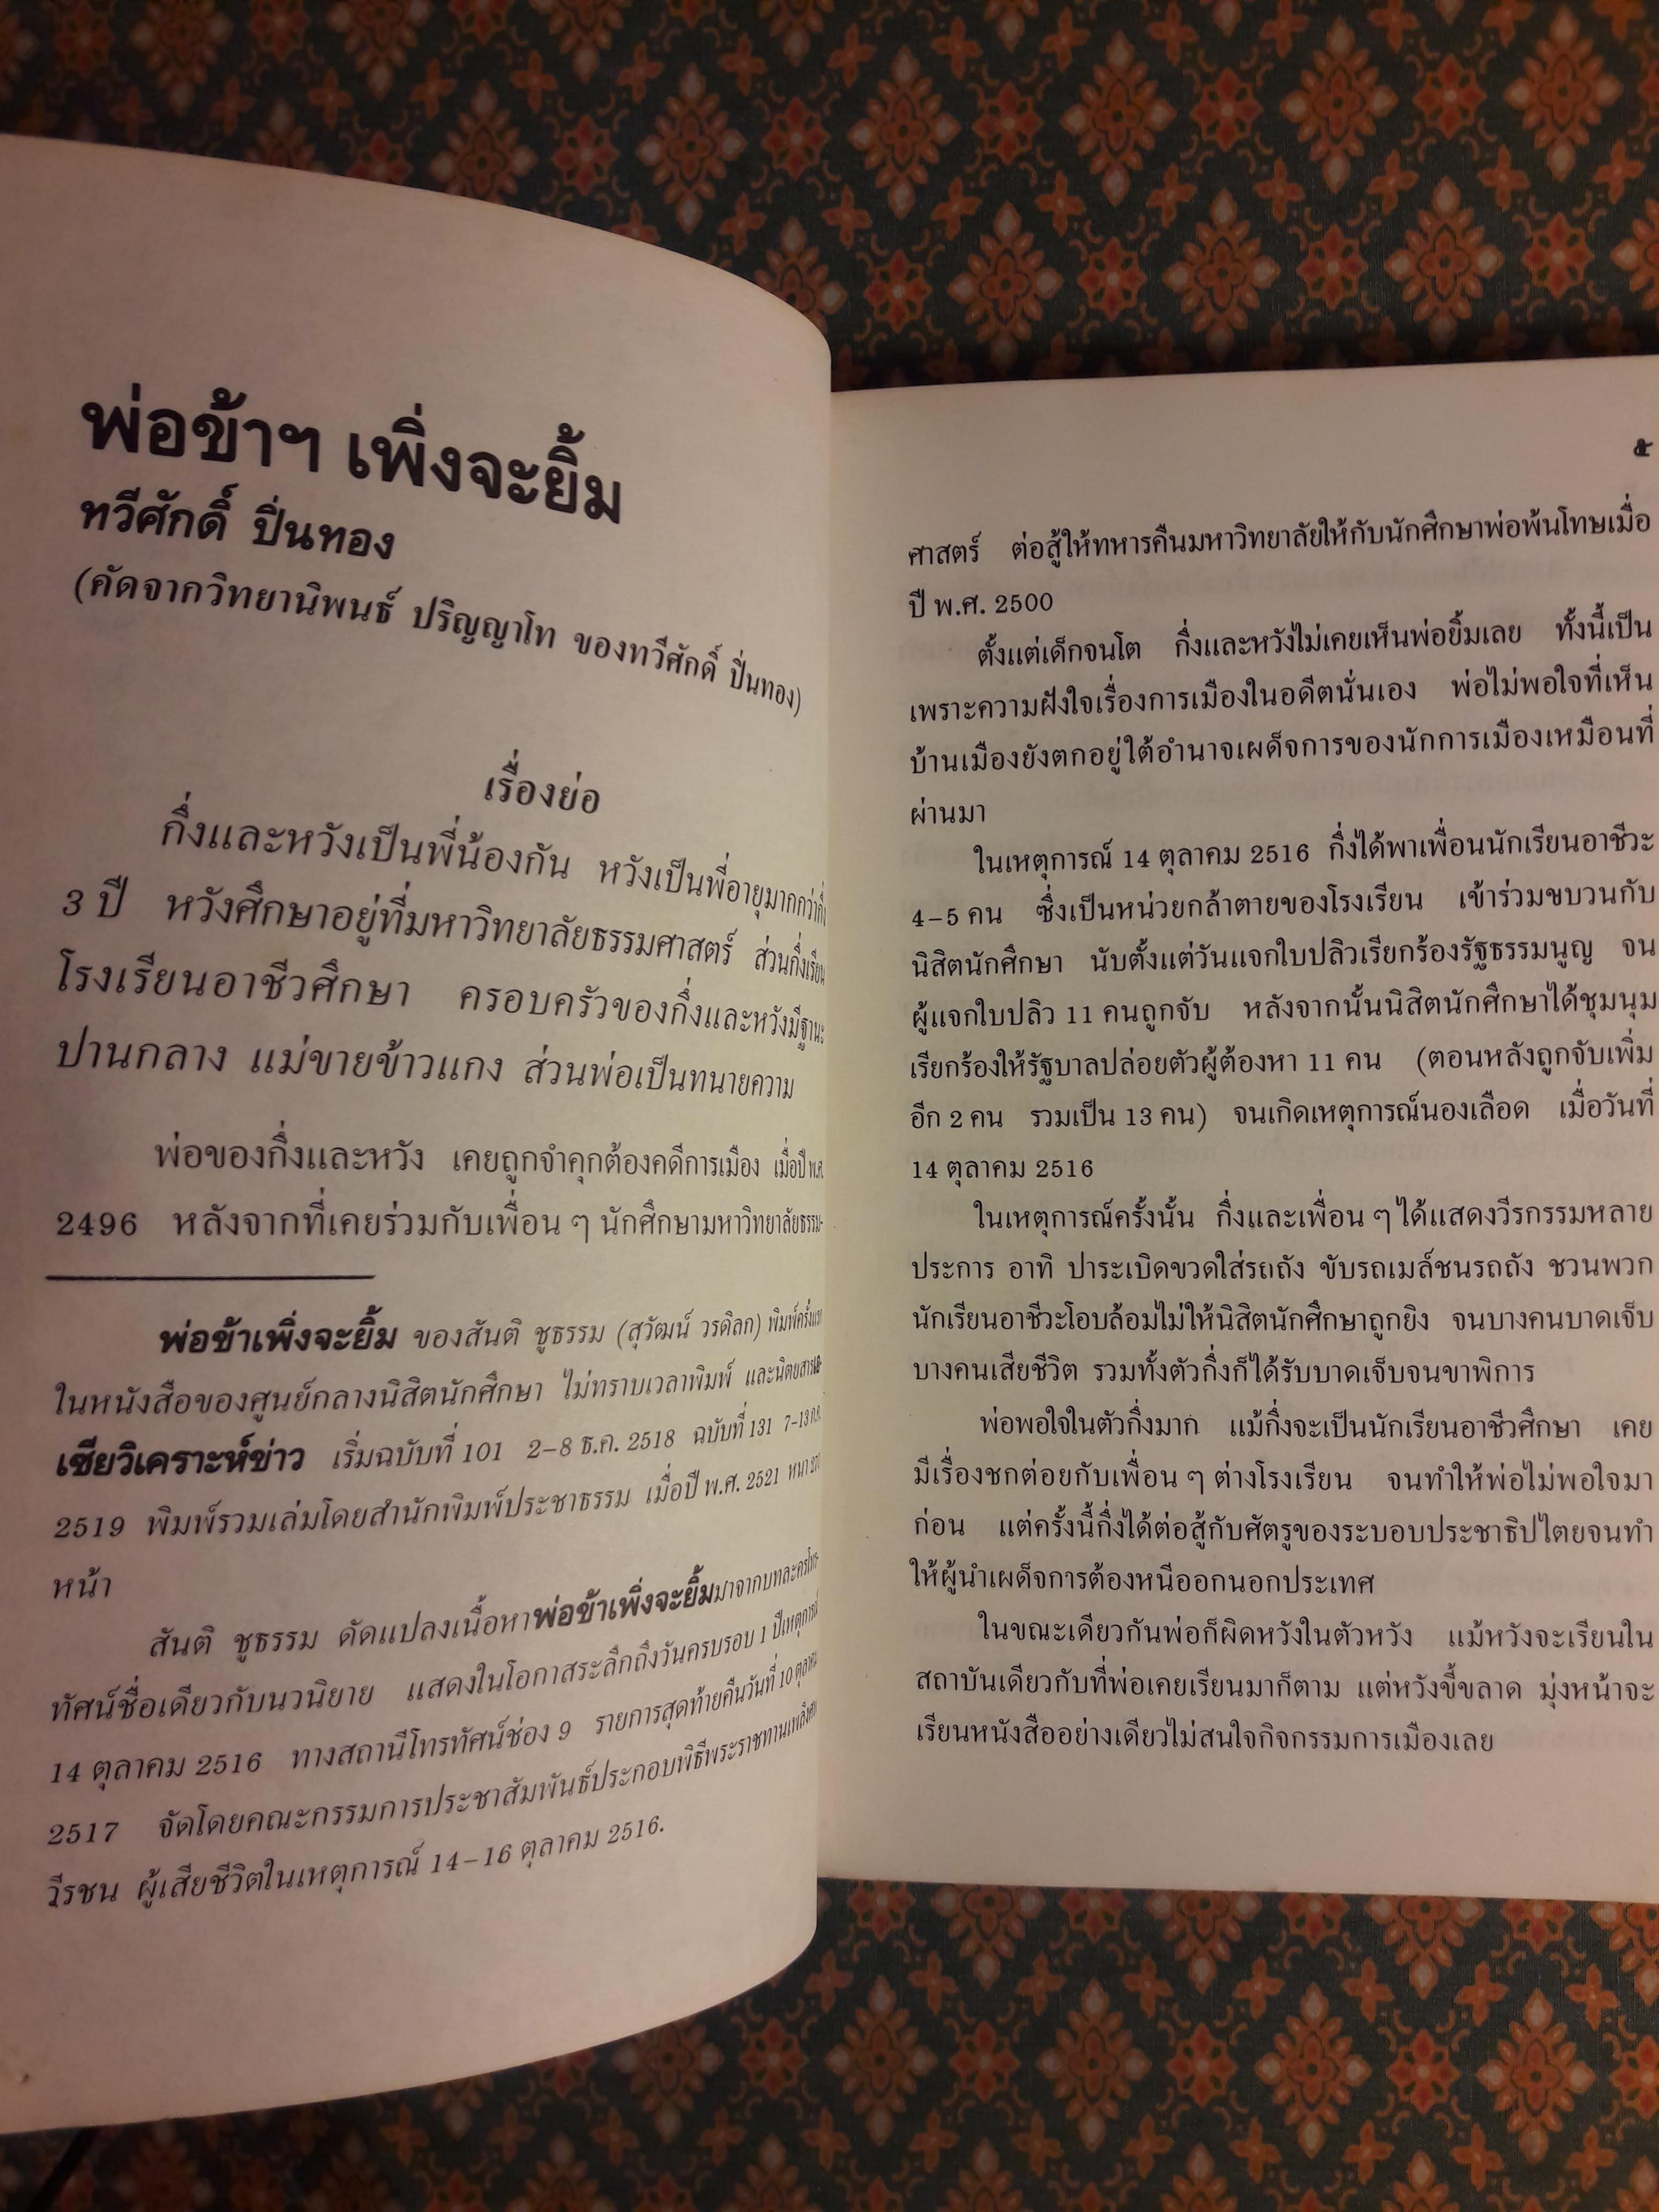 พ่อข้าฯ เพิ่งจะยิ้ม
ทวีศักดิ์ ปิ่นทอง
(คัดจากวิทยานิพนธ์ ปริญญาโท ของทวีศักดิ์ ปิ่นทอง)
เรื่องย่อ
กึ่งและหวังเป็นพี่น้องกัน หวังเป็นพี่อายุมากกว่ากึ่ง
3 ปี หวังศึกษาอยู่ที่มหาวิทยาลัยธรรมศาสตร์ ส่วนกึ่งเรียน
โรงเรียนอาชีวศึกษา ครอบครัวของกึ่งและหวังมีฐานะ
ปานกลาง แม่ขายข้าวแกง ส่วนพ่อเป็นทนายความ
พ่อของกึ่งและหวัง เคยถูกจำคุกต้องคดีการเมือง เมื่อปี พ.ศ.
2496 หลังจากที่เคยร่วมกับเพื่อน ๆ นักศึกษามหาวิทยาลัยธรรม-
พ่อข้าเพิ่งจะยิ้ม ของสันติ ชูธรรม (สุวัฒน์ วรดิลก) พิมพ์ครั้งแรก
ในหนังสือของศูนย์กลางนิสิตนักศึกษา ไม่ทราบเวลาพิมพ์ และนิตยสารเอ-
เซียวิเคราะห์ข่าว เริ่มฉบับที่ 101 2–8 ธ.ค. 2518 ฉบับที่ 131 7–13 ก.ค.
2519 พิมพ์รวมเล่มโดยสำนักพิมพ์ประชาธรรม เมื่อปี พ.ศ. 2521 หนา
หน้า
สันติ ชูธรรม ดัดแปลงเนื้อหาพ่อข้าเพิ่งจะยิ้มมาจากบทละครโทร-
ทัศน์ชื่อเดียวกับนวนิยาย แสดงในโอกาสระลึกถึงวันครบรอบ 1 ปีเหตุการณ์
14 ตุลาคม 2516 ทางสถานีโทรทัศน์ช่อง 9 รายการสุดท้ายคืนวันที่ 10 ตุลาคม
2517 จัดโดยคณะกรรมการประชาสัมพันธ์ประกอบพิธีพระราชทานเพลิงศพ
วีรชน ผู้เสียชีวิตในเหตุการณ์ 14–16 ตุลาคม 2516.
๕
ศาสตร์ ต่อสู้ให้ทหารคืนมหาวิทยาลัยให้กับนักศึกษาพ่อพ้นโทษเมื่อ
ปี พ.ศ. 2500
ตั้งแต่เด็กจนโต กึ่งและหวังไม่เคยเห็นพ่อยิ้มเลย ทั้งนี้เป็น
เพราะความฝังใจเรื่องการเมืองในอดีตนั่นเอง พ่อไม่พอใจที่เห็น
บ้านเมืองยังตกอยู่ใต้อำนาจเผด็จการของนักการเมืองเหมือนที่
ผ่านมา
ในเหตุการณ์ 14 ตุลาคม 2516 กึ่งได้พาเพื่อนนักเรียนอาชีวะ
4–5 คน ซึ่งเป็นหน่วยกล้าตายของโรงเรียน เข้าร่วมขบวนกับ
นิสิตนักศึกษา นับตั้งแต่วันแจกใบปลิวเรียกร้องรัฐธรรมนูญ จน
ผู้แจกใบปลิว 11 คนถูกจับ หลังจากนั้นนิสิตนักศึกษาได้ชุมนุม
เรียกร้องให้รัฐบาลปล่อยตัวผู้ต้องหา 11 คน (ตอนหลังถูกจับเพิ่ม
อีก 2 คน รวมเป็น 13 คน) จนเกิดเหตุการณ์นองเลือด เมื่อวันที่
14 ตุลาคม 2516
ในเหตุการณ์ครั้งนั้น กึ่งและเพื่อน ๆ ได้แสดงวีรกรรมหลาย
ประการ อาทิ ปาระเบิดขวดใส่รถถัง ขับรถเมล์ชนรถถัง ชวนพวก
นักเรียนอาชีวะโอบล้อมไม่ให้นิสิตนักศึกษาถูกยิง จนบางคนบาดเจ็บ
บางคนเสียชีวิต รวมทั้งตัวกึ่งก็ได้รับบาดเจ็บจนขาพิการ
พ่อพอใจในตัวกึ่งมาก แม้กึ่งจะเป็นนักเรียนอาชีวศึกษา เคย
มีเรื่องชกต่อยกับเพื่อน ๆ ต่างโรงเรียน จนทำให้พ่อไม่พอใจมา
ก่อน แต่ครั้งนี้กึ่งได้ต่อสู้กับศัตรูของระบอบประชาธิปไตยจนทำ
ให้ผู้นำเผด็จการต้องหนีออกนอกประเทศ
ในขณะเดียวกันพ่อก็ผิดหวังในตัวหวัง แม้หวังจะเรียนใน
สถาบันเดียวกับที่พ่อเคยเรียนมาก็ตาม แต่หวังขี้ขลาด มุ่งหน้าจะ
เรียนหนังสืออย่างเดียวไม่สนใจกิจกรรมการเมืองเลย